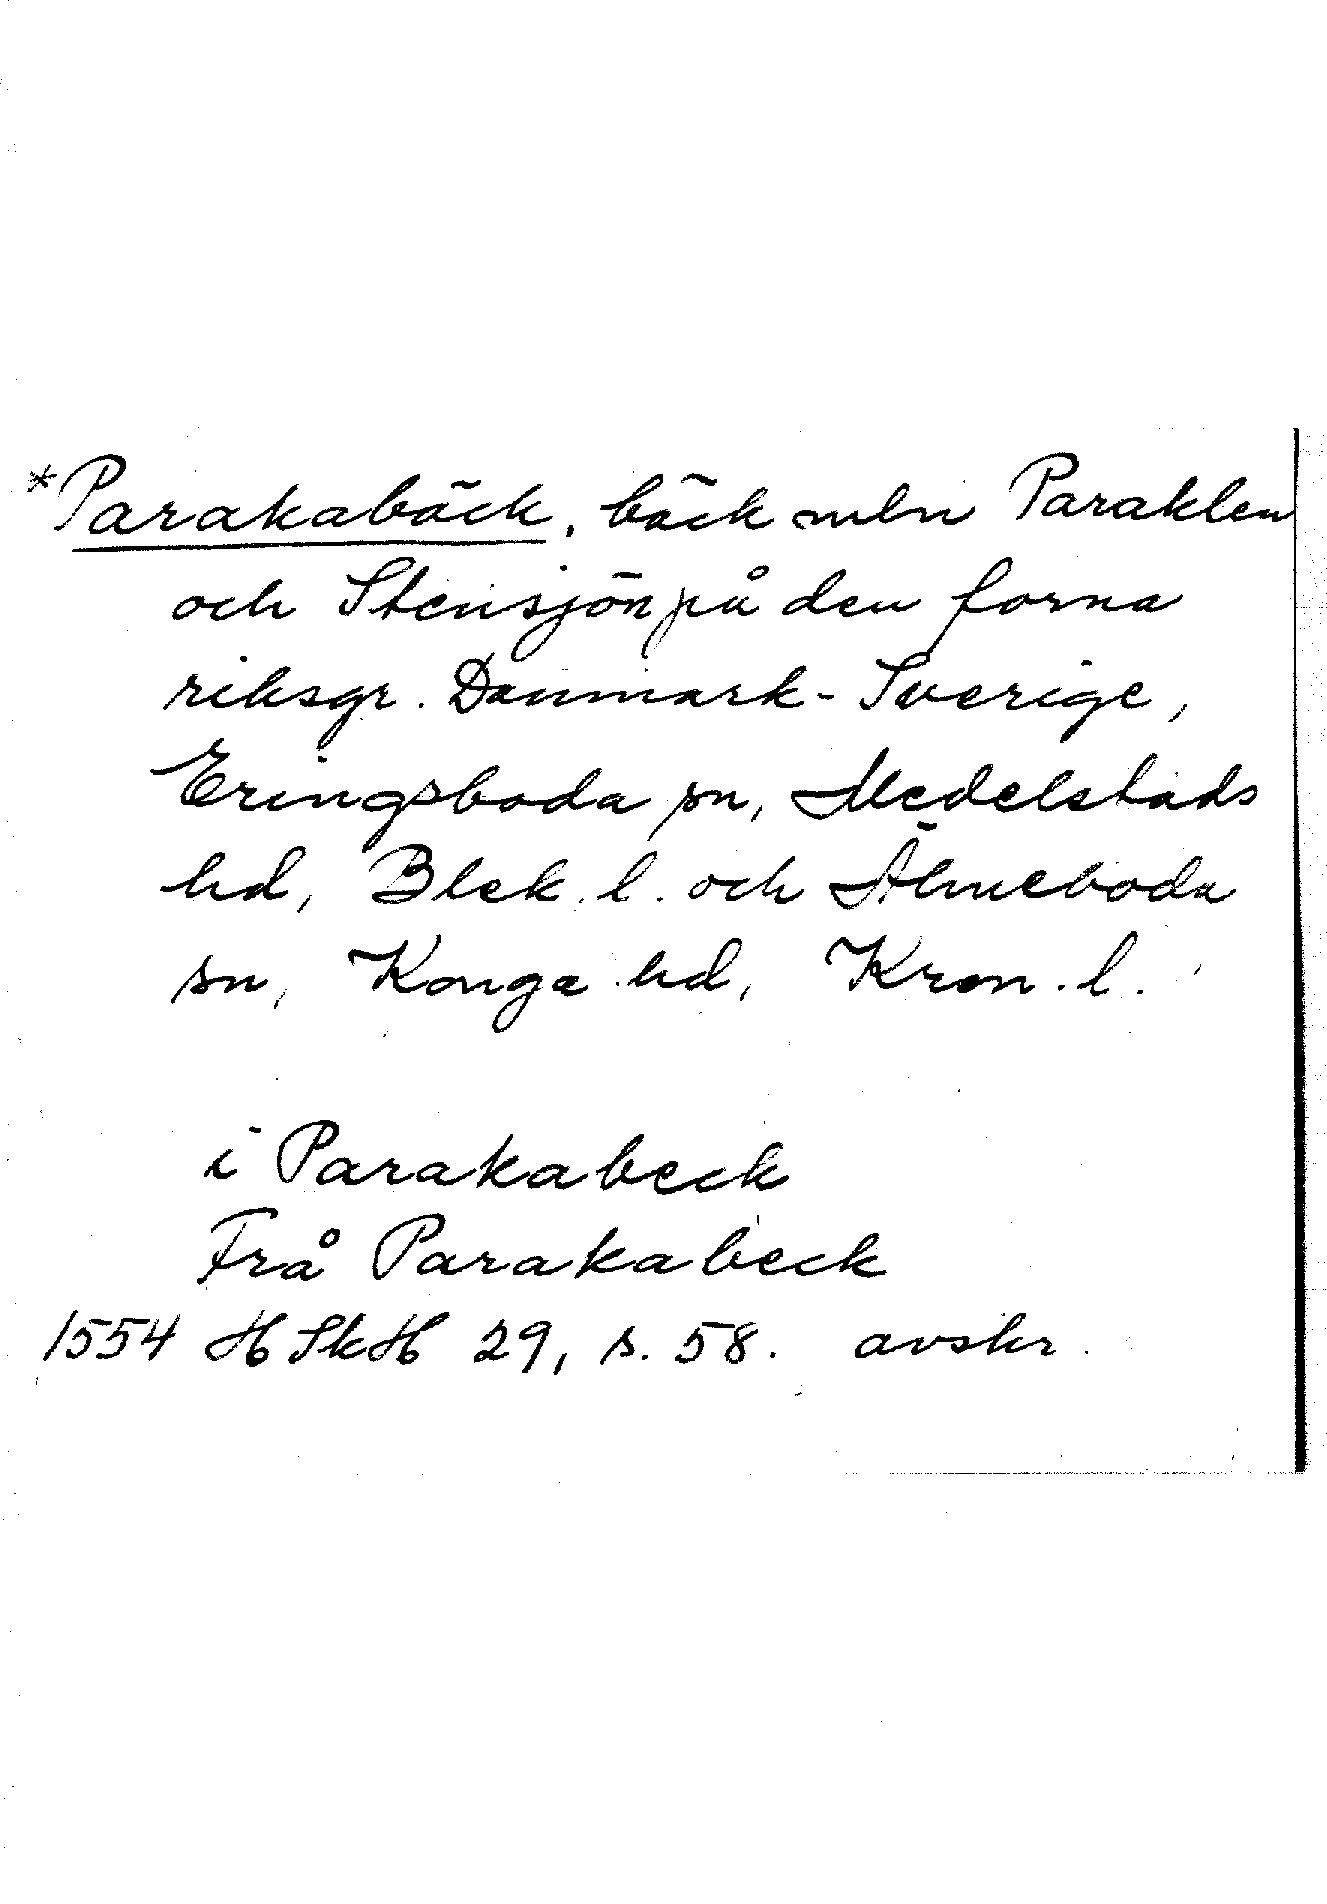 *Parakabäck, bäck mln Paraklen
och Stensjön på den forna
riksgr. Danmark-Sverige,
Eringsboda sn, Medelstads
hd, Blek. l. och Älmeboda
sn, Konga hd, Kron. l.
i Parakabeck
Frå Parakabeck
1554 HSkH 29, s. 58. avskr.